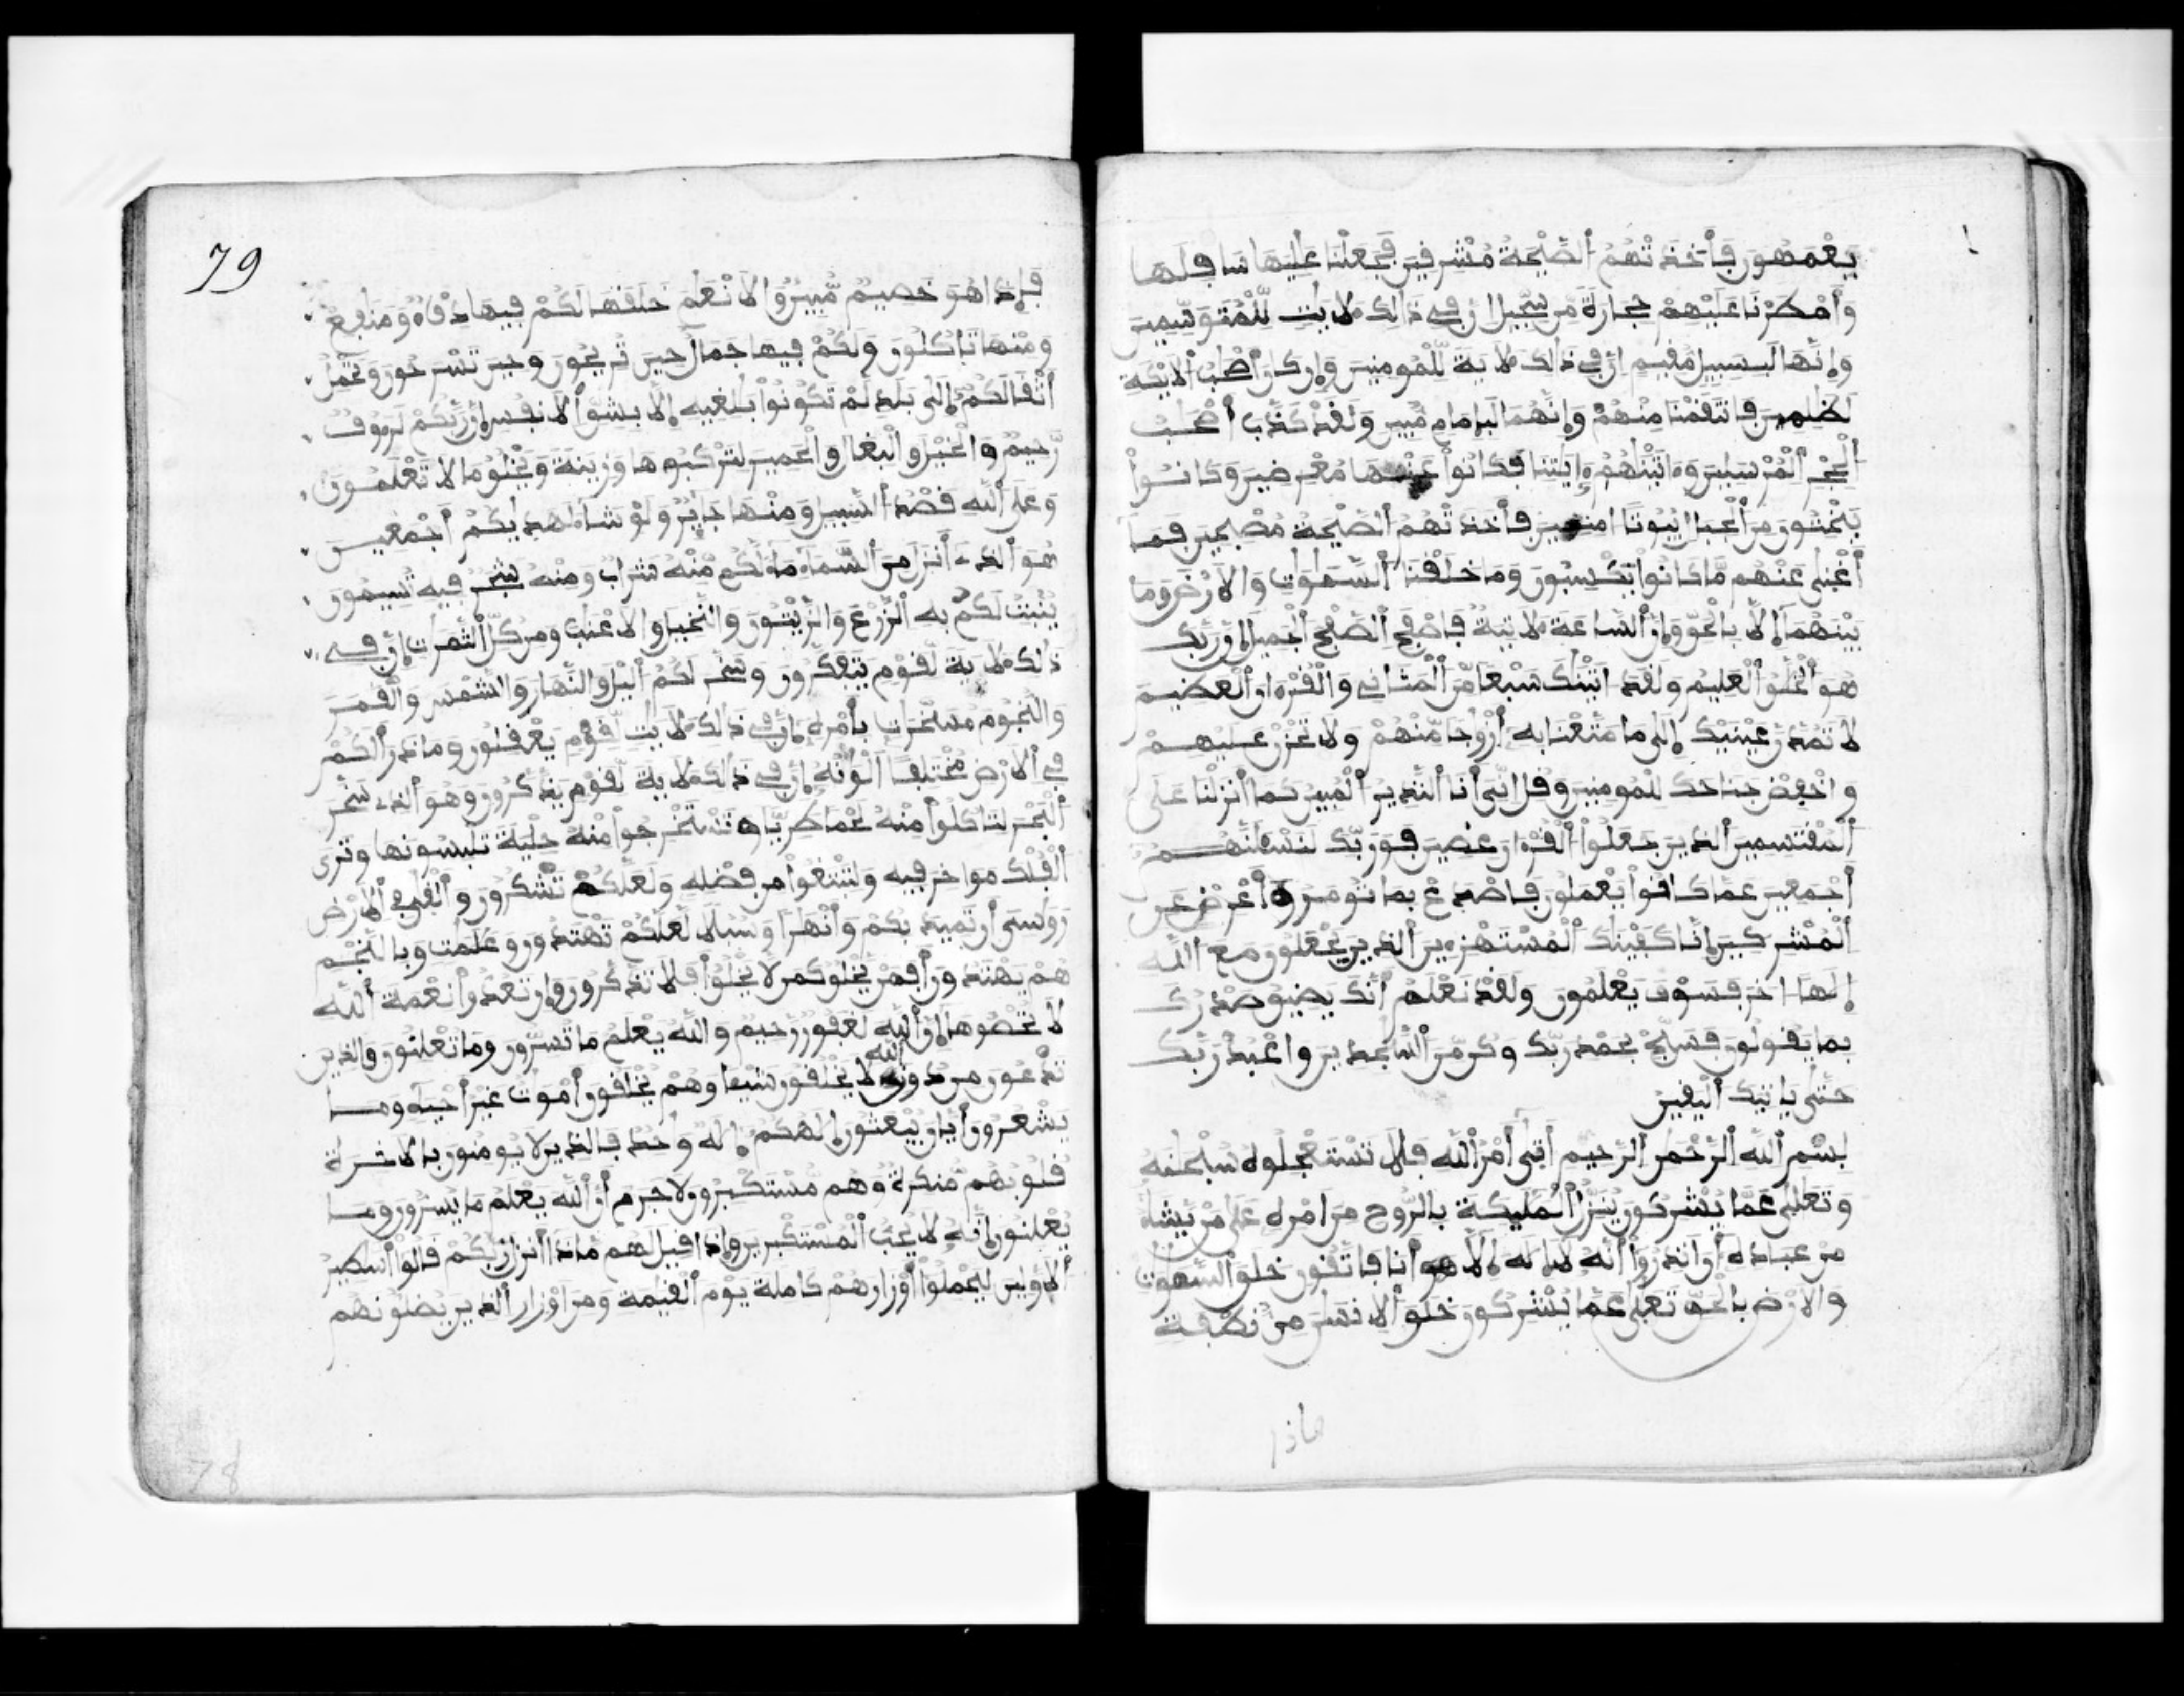 يعمهون فأخذتهم الصيحة مشرفين فجعلنا عليها سافلها
وأمطرنا عليهم حجارة من سجيل إن في ذلك لآيت للمتوسمين
وإنها لبسبيل مقيم إن في ذلك لآية للمومنين وإن كان أصحب الأيكة
لظلمين فانتقمنا منهم وإنهما لبإمام مبين ولقد كذب أصحب
الحجر المرسلين وءاتينهم ءايتنا فكانوا عنها معرضين وكانوا
ينحتون من الجبال بيوتا امنين فأخذتهم الصيحة مصبحين فما
أغنى عنهم ما كانوا يكسبون وما خلقنا السموت والارض وما
بينهما إلا بالحق وإن الساعة لاتية فاصفح الصفح الجميل إن ربك
هو الخلق العليم ولقد اتينك سبعا من المثاني والقرءان العظيم
لا تمدن عينيك إلى ما متعنا به أزوجا منهم ولا تحزن عليهم
واخفض جناحك للمومنين وقل اني أنا النذير المبين كما أنزلنا على
المقتسمين الذين جعلوا القرءان عضين فوربك لنسءلنهم
أجمعين عما كانوا يعملون فاصدع بما تومر وأعرض عن
المشركين إنا كفينك المستهزءين الذين يجعلون مع الله
إلها اخر فسوف يعلمون ولقد نعلم أنك يضيق صدرك
بما يقولون فسبح بحمد ربك وكن من السجدين واعبد ربك
حتى ياتيك اليقين
بسم الله الرحمن الرحيم أتى أمر الله فلا تستعجلوه سبحنه
وتعلى عما يشركون ينزل المليكة بالروح من امره على من يشاء
من عباده أن انذروا أنه لا إله إلا أنا فاتقون خلق السموت
والارض بالحق تعلى عما يشركون خلق الانسن من نطفة
79
فإذا هو خصيم مبين والانعم خلقها لكم فيها دفء ومنفع
ومنها تاكلون ولكم فيها جمال حين تريحون وحين تسرحون وتحمل
أثقالكم إلى بلد لم تكونوا بلغيه إلا بشق الانفس إن ربكم لرءوف
رحيم والخيل والبغال والحمير لتركبوها وزينة ويخلق ما لا تعلمون
وعلى الله قصد السبيل ومنها جاير ولو شاء لهديكم أجمعين
هو الذي أنزل من السماء ماء لكم منه شراب ومنه شجر فيه تسيمون
ينبت لكم به الزرع والزيتون والنخيل والاعنب ومن كل الثمرت إن في
ذلك لاية لقوم يتفكرون وسخر لكم اليل والنهار والشمس والقمر
والنجوم مسخرت بأمره إن في ذلك لايت لقوم يعقلون وما ذرأ لكم
في الارض مختلفا ألونه إن في ذلك لاية لقوم يذكرون وهو الذي سخر
البحر لتاكلوا منه لحما طريا وتستخرجوا منه حلية تلبسونها وترى
الفلك مواخر فيه ولتبتغوا من فضله ولعلكم تشكرون وألقى في الارض
روسي أن تميد بكم وأنهرا وسبلا لعلكم تهتدون وعلمت وبالنجم
هم يهتدون أفمن يخلق كمن لا يخلق أفلا تذكرون وإن تعدوا نعمة الله
لا تحصوها إن الله لغفور رحيم والله يعلم ما تسرون وما تعلنون والذين
تدعون من دون الله لا يخلقون شيئا وهم يخلقون أموت غير أحياء وما
يشعرون أيان يبعثون إلهكم إله واحد فالذين لا يومنون بالاخرة
قلوبهم منكرة وهم مستكبرون لا جرم أن الله يعلم ما يسرون وما
يعلنون إنه لا يحب المستكبرين وإذا قيل لهم ماذا أنزل ربكم قالوا أسطير
الاولين ليحملوا أوزارهم كاملة يوم القيمة ومن اوزار الذين يضلونهم
78